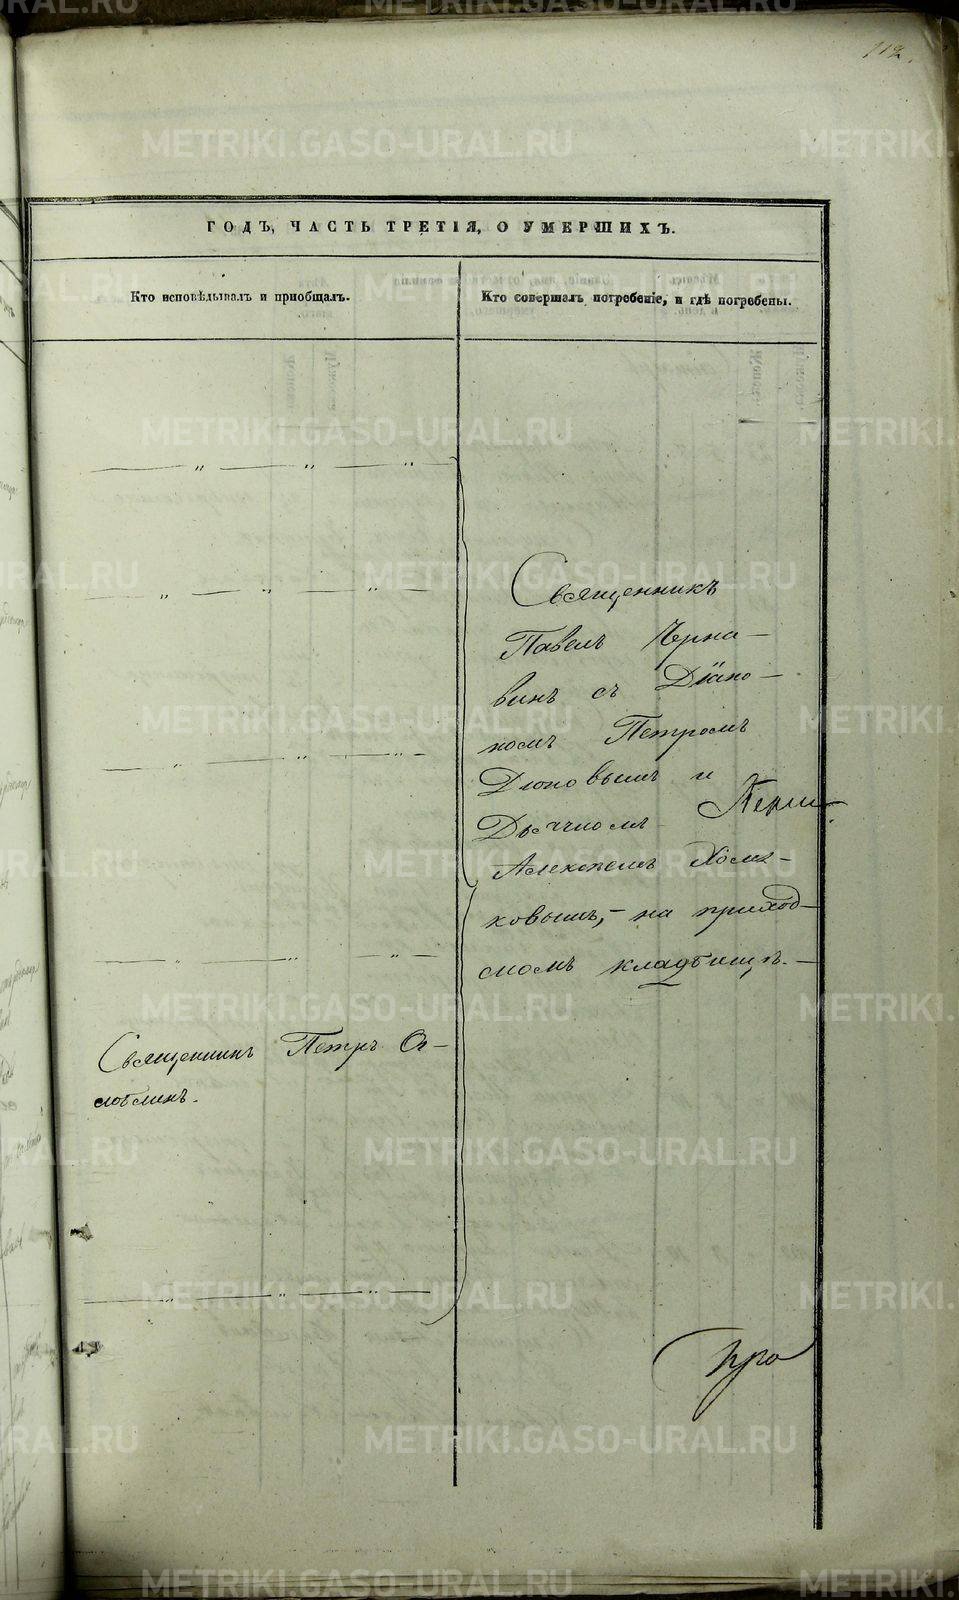 112.
ГОДЪ, ЧАСТЬ ТРЕТІЯ, О УМЕРШИХЪ.
Кто исповѣдывалъ и пріобщалъ.
Кто совершалъ погребеніе, и гдѣ погребены.
Священникъ
Павелъ Черна–
винъ съ Діако–
номъ Петромъ
и
Дьячкомъ
Алексѣемъ Хомя–
ковымъ, – на приход–
скомъ кладбищѣ. –
Священникъ Петръ
METRIKI.GASO-URAL.RU